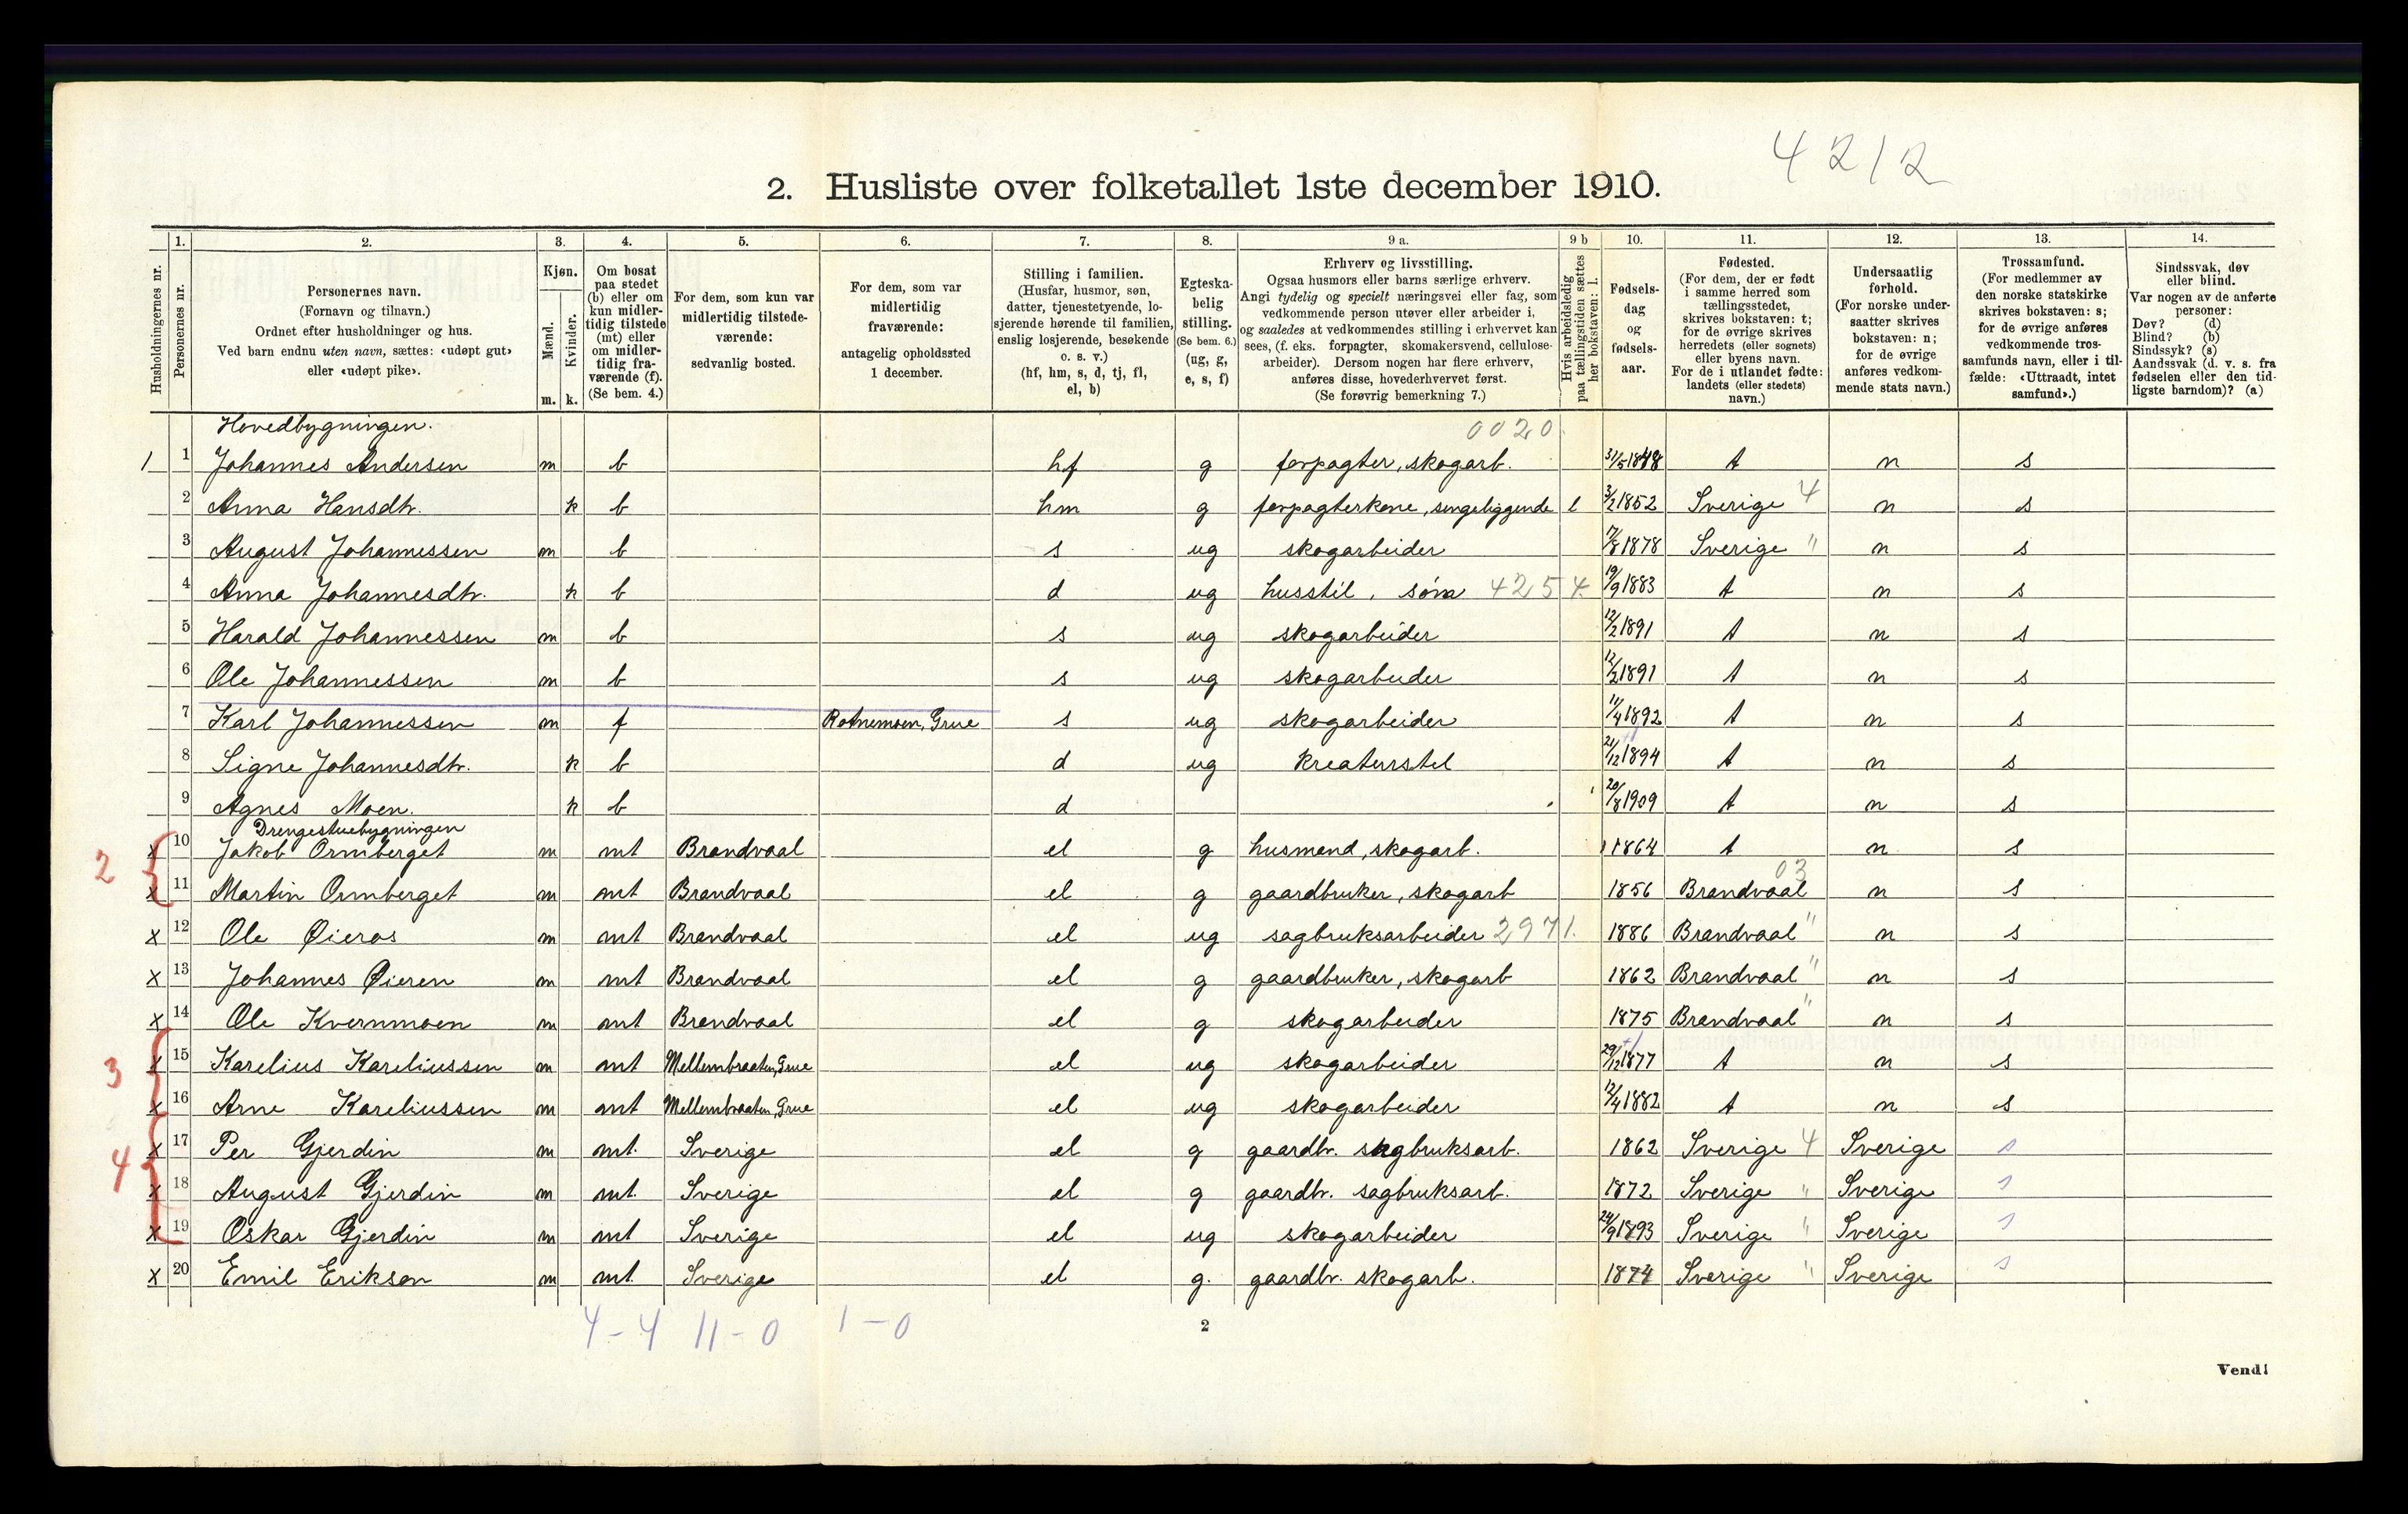 4212
2. Husliste over folketallet 1ste december 1910.
1. 2. 3. 4. 5. 6. 7. 8. 9 a. 9 b 10. 11. 12. 13. 14.
Husholdningernes nr.
Personernes nr.
Personernes navn.
(Fornavn og tilnavn.)
Ordnet efter husholdninger og hus.
Ved barn endnu uten navn, sættes: «udøpt gut»
eller «udøpt pike».
Kjøn.
Mænd.
Kvinder.
m. k.
Om bosat
paa stedet
(b) eller om
kun midler-
tidig tilstede
(mt) eller
om midler-
tidig fra-
værende (f).
(Se bem. 4.)
For dem, som kun var
midlertidig tilstede-
værende:
sedvanlig bosted.
For dem, som var
midlertidig
fraværende:
antagelig opholdssted
1 december.
Stilling i familien.
(Husfar, husmor, søn,
datter, tjenestetyende, lo-
sjerende hørende til familien,
enslig losjerende, besøkende
o. s. v.)
(hf, hm, s, d, tj, fl,
el, b)
Egteska-
belig
stilling.
(Se bem. 6.)
(ug, g,
e, s, f)
Erhverv og livsstilling.
Ogsaa husmors eller barns særlige erhverv.
Angi tydelig og specielt næringsvei eller fag, som
vedkommende person utøver eller arbeider i,
og saaledes at vedkommendes stilling i erhvervet kan
sees, (f. eks. forpagter, skomakersvend, cellulose-
arbeider). Dersom nogen har flere erhverv,
anføres disse, hovederhvervet først.
(Se forøvrig bemerkning 7.)
Hvis arbeidsledig
paa tællingstiden sættes
her bokstaven: l.
Fødsels-
dag
og
fødsels-
aar.
Fødested.
(For dem, der er født
i samme herred som
tællingsstedet,
skrives bokstaven: t;
for de øvrige skrives
herredets (eller sognets)
eller byens navn.
For de i utlandet fødte:
landets (eller stedets)
navn.)
Undersaatlig
forhold.
(For norske under-
saatter skrives
bokstaven: n;
for de øvrige
anføres vedkom-
mende stats navn.)
Trossamfund.
(For medlemmer av
den norske statskirke
skrives bokstaven: s;
for de øvrige anføres
vedkommende tros-
samfunds navn, eller i til-
fælde: «Uttraadt, intet
samfund».)
Sindssvak, døv
eller blind.
Var nogen av de anførte
personer:
Døv? (d)
Blind? (b)
Sindssyk? (s)
Aandssvak (d. v. s. fra
fødselen eller den tid-
ligste barndom)? (a)
Hovedbygningen. 0020
1 1 Johannes Andersen m b hf g forpagter, skogarb. 31/5 1848 t n s
2 Anna Hansdtr. k b hm g forpagterkone, sengeliggende l 3/2 1852 Sverige 4 n s
3 August Johannessen m b s ug skogarbeider 17/8 1878 Sverige " n s
4 Anna Johannesdtr. k b d ug husstil, søm 4254 19/9 1883 t n s
5 Harald Johannessen m b s ug skogarbeider 12/2 1891 t n s
6 Ole Johannessen m b s ug skogarbeider 12/2 1891 t n s
7 Karl Johannessen m f Rotnemoen, Grue s ug skogarbeider 11/4 1892 t n s
8 Signe Johannesdtr. k b d ug kreaturstel 21/12 1894 t n s
9 Agnes Moen. k b d 20/8 1909 t n s
Drengestuebygningen
2 x 10 Jakob Ormberget m mt Brandvaal el g husmand, skogarb. 1864 t n s
x 11 Martin Ormberget m mt Brandvaal el g gaardbruker, skogarb 1856 Brandvaal 03 n s
x 12 Ole Øieros m mt Brandvaal el ug sagbruksarbeider 2971. 1886 Brandvaal " n s
x 13 Johannes Øieren m mt Brandvaal el g gaardbruker, skogarb 1862 Brandvaal " n s
x 14 Ole Kvernmoen m mt Brandvaal el g skogarbeider 1875 Brandvaal " n s
3 x 15 Karelius Kareliussen m mt Mellembraaten, Grue el ug skogarbeider 29/12 1877 t n s
x 16 Arne Kareliussen m mt Mellembraaten, Grue el ug skogarbeider 12/4 1882 t n s
4 x 17 Per Gjerdin m mt. Sverige el g gaardbr. sagbruksarb. 1862 Sverige 4 Sverige s
x 18 August Gjerdin m mt. Sverige el g gaardbr. sagbruksarb. 1872 Sverige " Sverige s
x 19 Oskar Gjerdin m mt Sverige el ug skogarbeider 24/9 1893 Sverige " Sverige s
x 20 Emil Erikson m mt. Sverige el g. gaardbr. skogarb. 1874 Sverige " Sverige s
4-4 11-0 1-0
2
Vend!